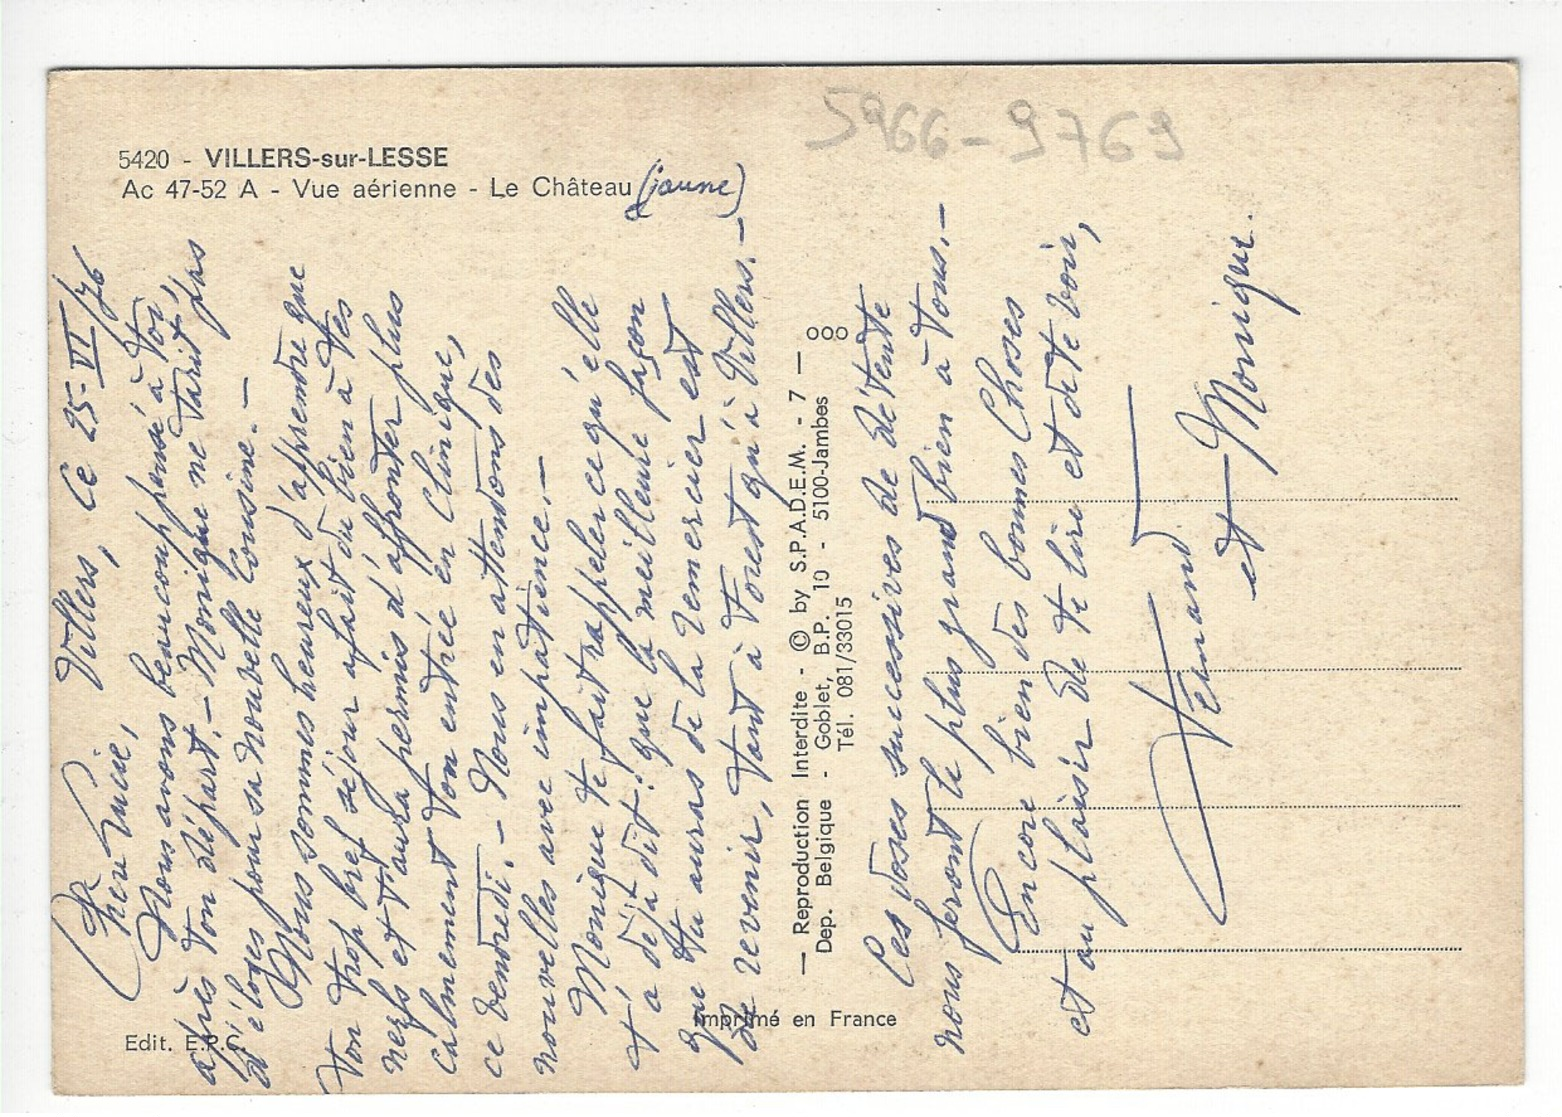 5966-9769
5420 - VILLERS-sur-LESSE
Ac 47-52 A - Vue aérienne - Le Château (jaune)
Villers, ce 25-VI/76
Chère Lucie,
Nous avons beaucoup pensé à toi,
après ton départ.- Monique ne tarit pas
d'éloges pour sa nouvelle Cousine.-
Nous sommes heureux d'apprendre que
ton trop bref séjour a fait du bien à tes
nerfs et t'aura permis d'affronter plus
calmement ton entrée en Clinique,
ce vendredi.- Nous en attendons des
nouvelles avec impatience.-
Monique te fait rappeler ce qu'elle
t'a déjà dit: que la meilleure façon
que tu auras de la remercier est
de revenir, tant à Forest qu'à Villers.-
Ces doses successives de détente
nous feront le plus grand bien à tous.-
Encore bien des bonnes Choses
et au plaisir de te lire et de te voir,
Fernand
et Monique.
— Reproduction Interdite - © by S.P.A.D.E.M. - 7 —
Dep. Belgique - Goblet, B.P. 10 - 5100-Jambes
Tél. 081/33015
ooo
Imprimé en France
Edit. E.P.C.